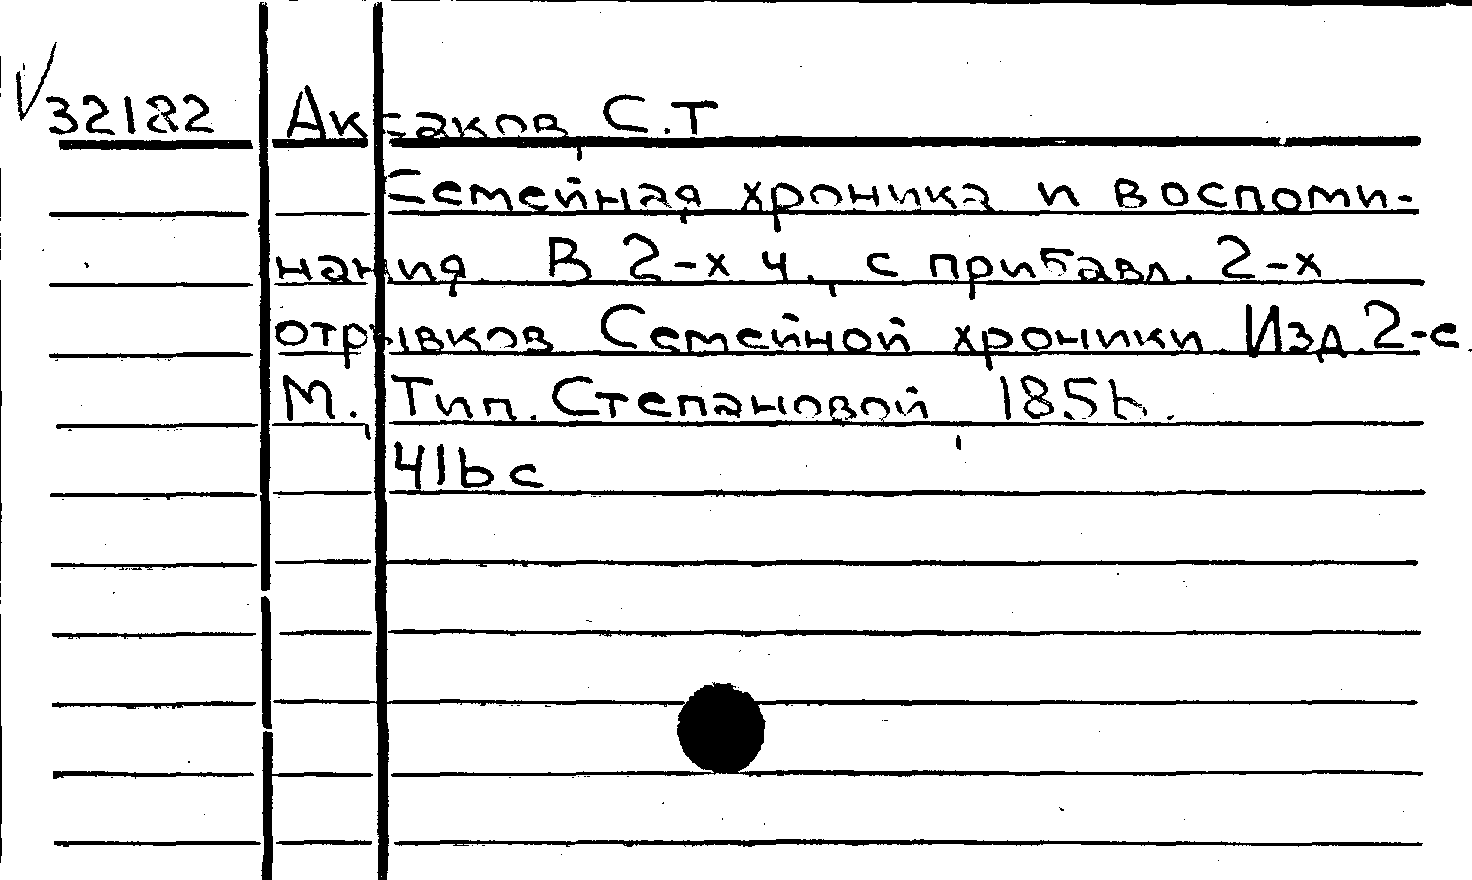 32182 Аксаков, С.Т
Семейная хроника и воспоми-
нания. В 2-х ч., с прибавл. 2-х
отрывков Семейной хроники. Изд. 2-е.
М., Тип. Степановой, 1856.
416 с